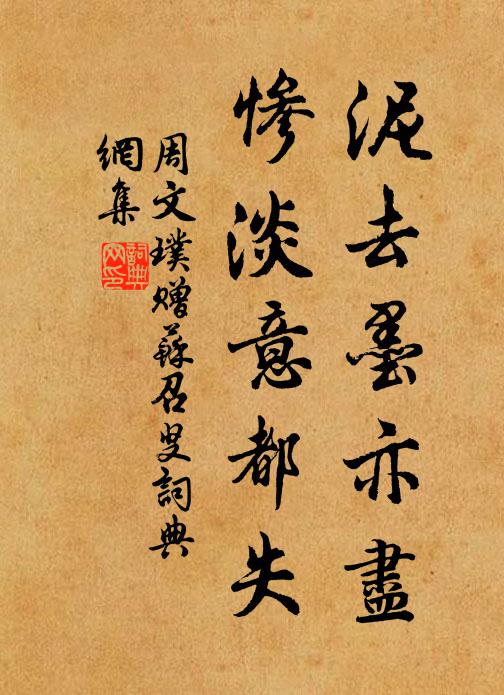 泥去墨亦盡
慘淡意都失
周文璞贈蘇召叟詞典
網集
詞典網印